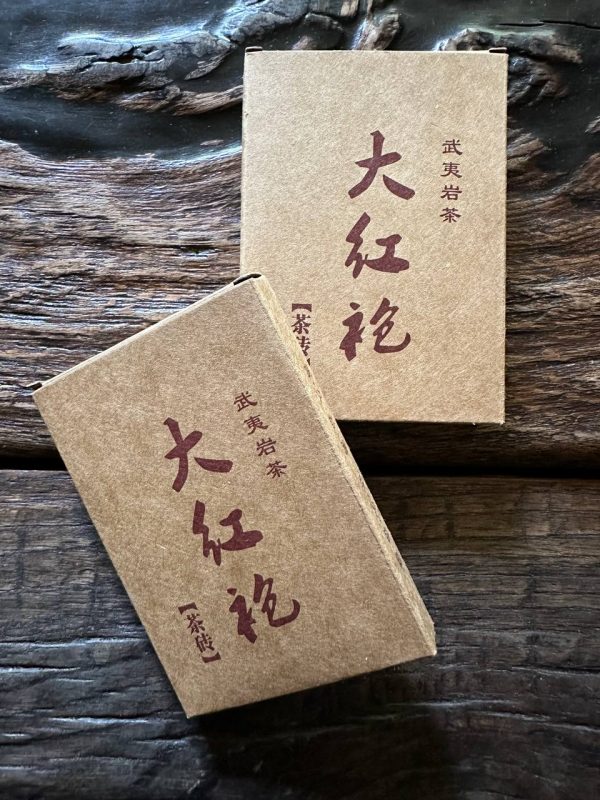 武夷岩茶
大红袍
【茶砖】
武夷岩茶
大红袍
【茶砖】